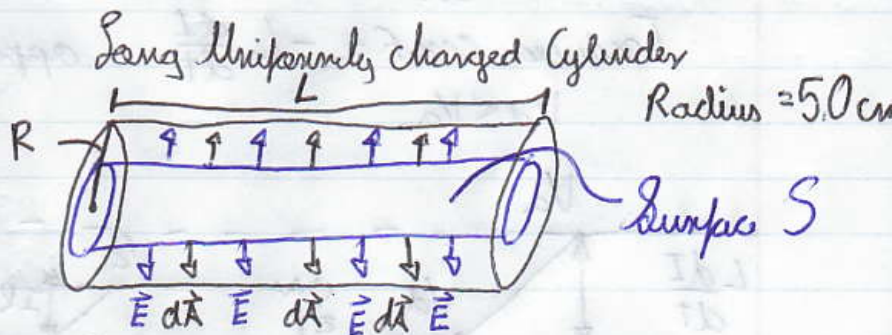 Long Uniformly Charged Cylinder
L
Radius = 5.0 cm
R
Surface S
E⃗ dA⃗ E⃗ dA⃗ E⃗ dA⃗ E⃗